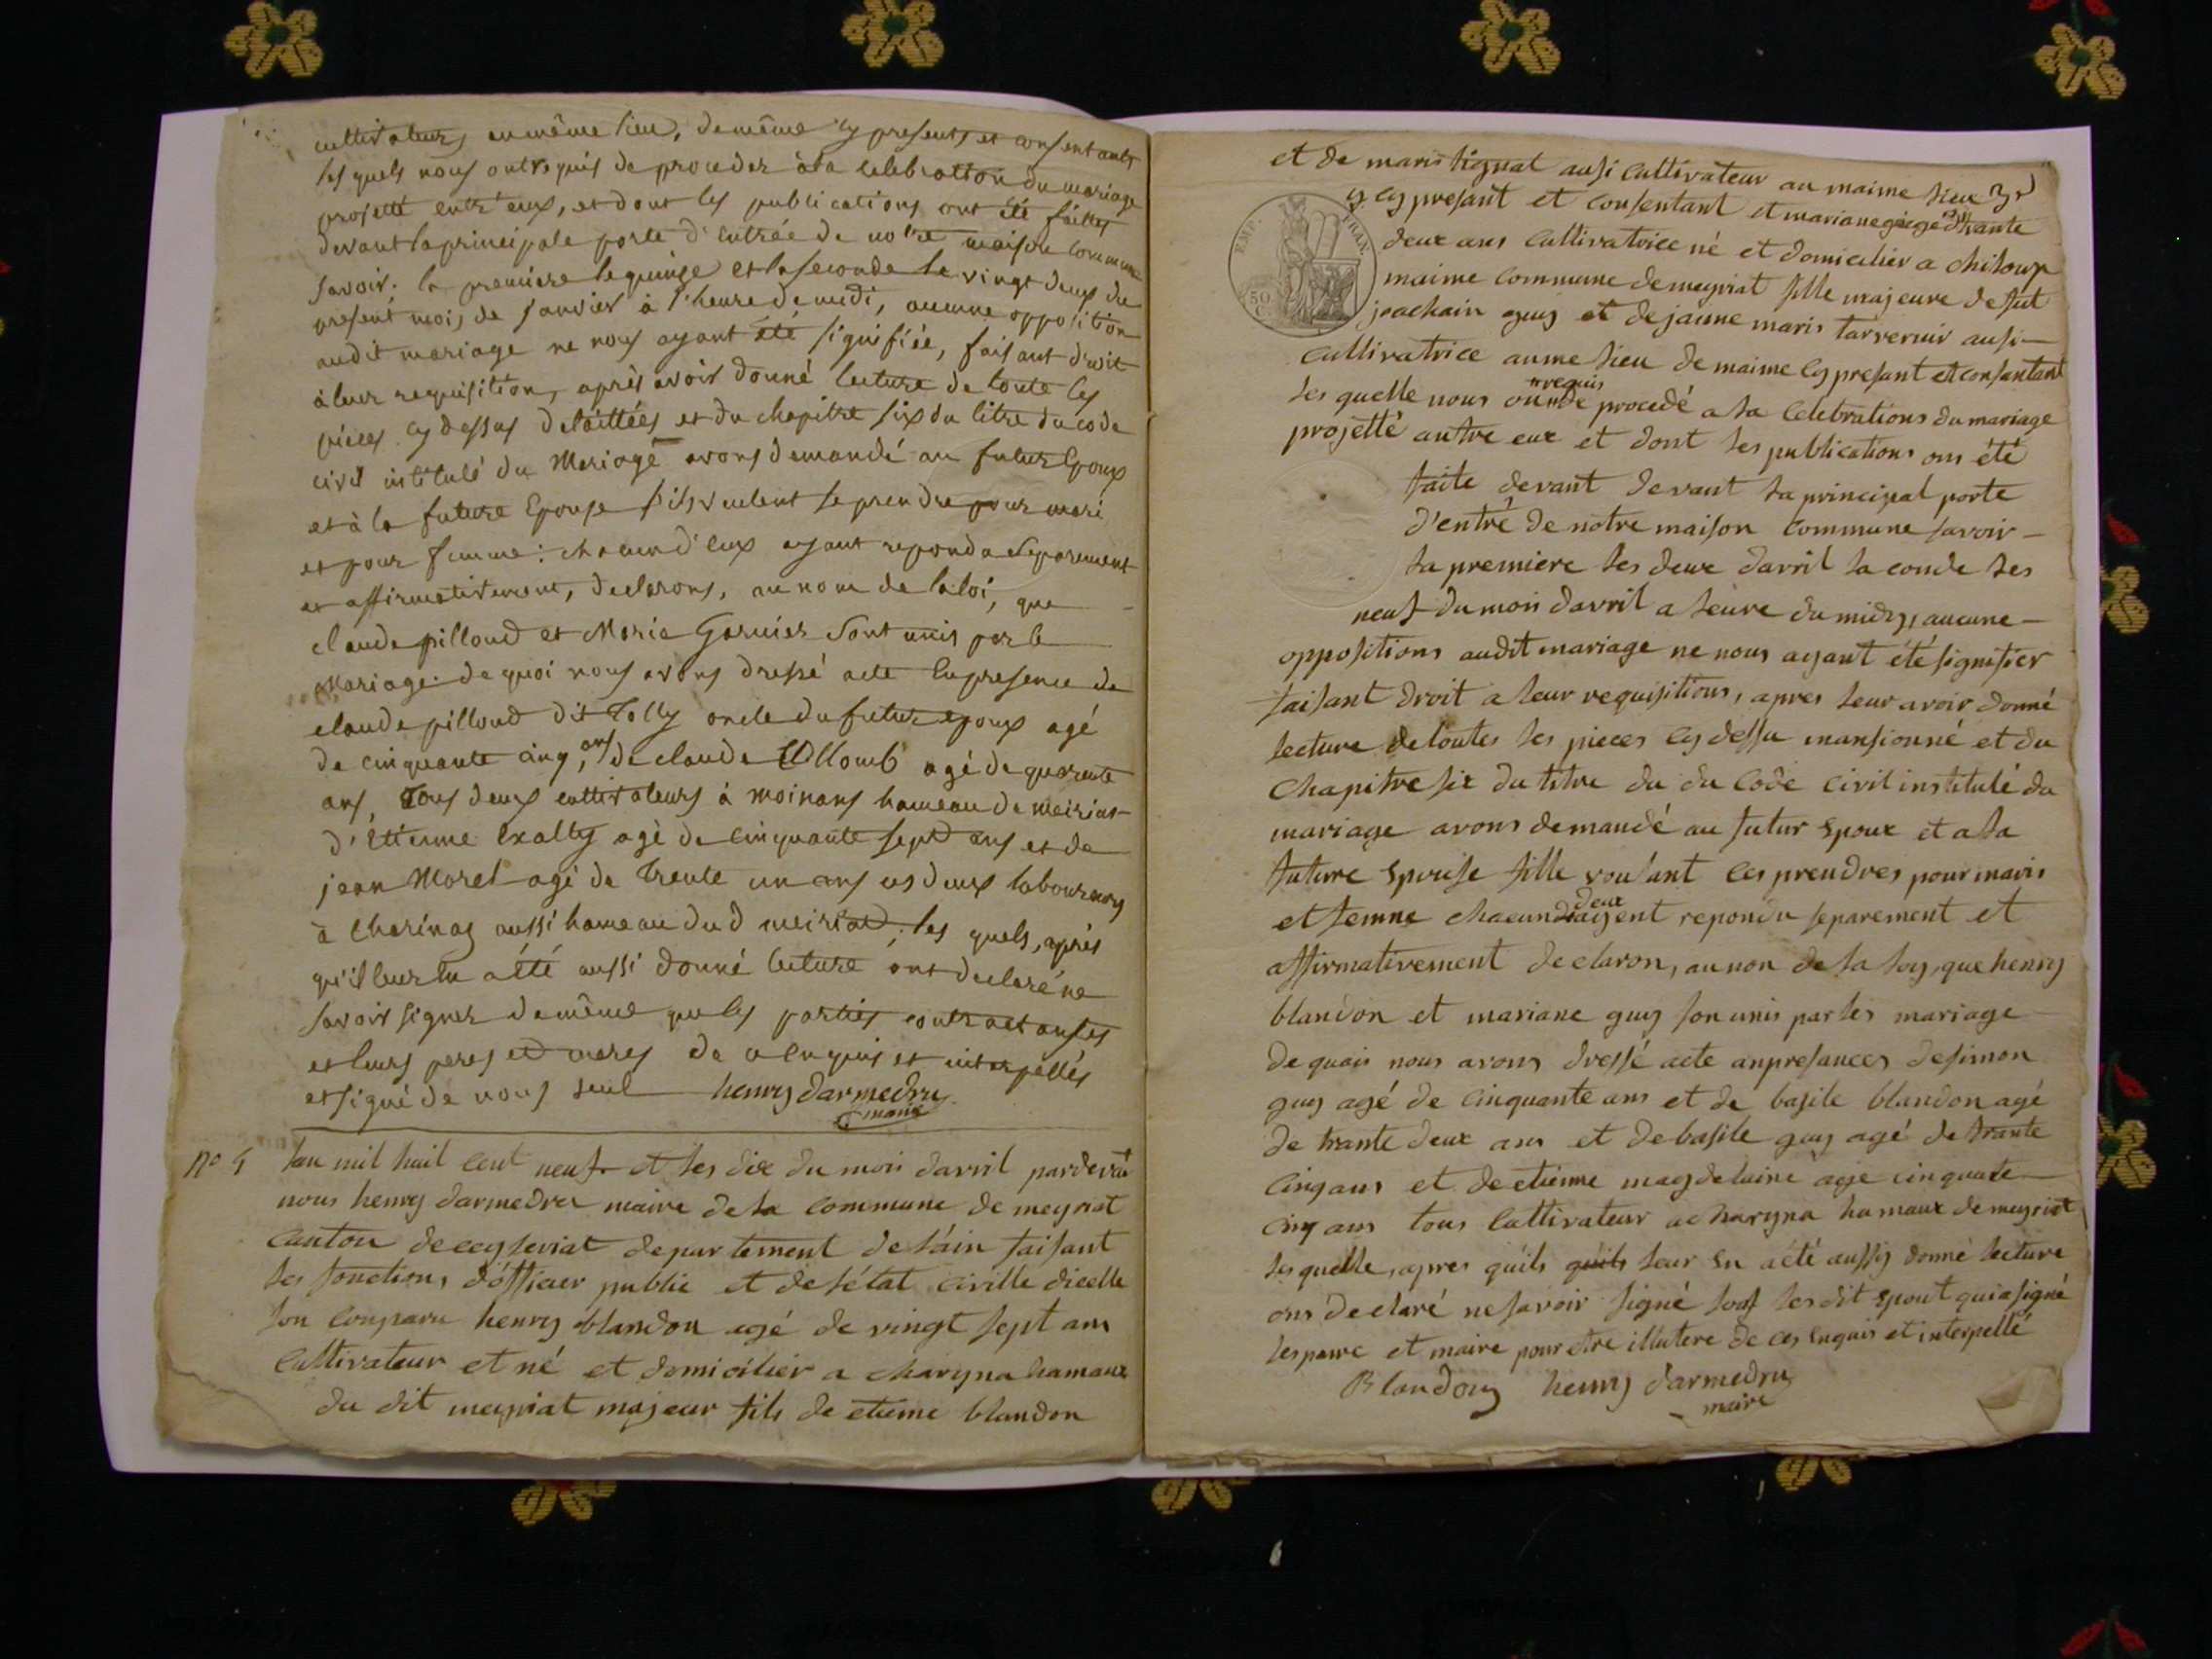 cultivateurs en même lieu, de même cy presents et consentants
les quels nous ont requis de proceder à la celebration du mariage
projetté entr'eux, et dont les publications ont été faittes
devant la principale porte d'entrée de notre maison commune
savoir. la premiere le quinze et la seconde le vingt deux du
present mois de janvier à l'heure de midi, aucune opposition
audit mariage ne nous ayant été signifiée, faisant droit
à leur requisition, après avoir donné lecture de toute les
pièces cy dessus detaillées et du chapitre six du titre du code
civil intitulé du Mariage avons demandé au futur Epoux
et à la future Epouse s'ils veulent se prendre pour mari
et pour femme: chacun d'eux ayant repondu Separement
et affirmativement, declarons, au nom de la loi, que
claude pilloud et Marie Garnier Sont unis par le
Mariage. de quoi nous avons dressé acte En presence de
claude pilloud dit Tolly oncle du futur epoux agé
de cinquante cinq ans, de claude Collomb agé de quarente
ans, Tous deux cultivateurs à moinans hameau de meiriat
d'Etienne Exalty agé de cinquante sept ans et de
jean Morel agé de Trente un ans les deux laboureurs
à Charinaz aussi hameau dud meiriat; les quels, après
qu'il leur en a été aussi donné lecture ont declaré ne
savoir signer de même que les parties contractantes
et leurs peres et meres de ce enquis et interpellés
et signé de nous seul henry darmedru
maire
N° 5 lan mil huit cent neuf et les dix du mois davril pardevant
nous henry darmedru maire de la commune de meyriat
canton de ceyseriat departement de l'ain faisant
les fonctions d'officier public et de l'état civille dicelle
son comparu henry blandon agé de vingt sept ans
Cultivateur et né et domicilier a charyna hamaux
du dit meyriat majeur fils de etieme blandon
et de maris tignat ausi Cultivateur au maime lieu
cy present et consentant et mariane guy agé de trante
deux ans Cultivatrice né et domicilier a chiloup
maime commune de meyriat fille majeure de fut
EMP. FRAN.
50 C.
joachain guy et de janne maris tarvernier ausi
cultivatrice aume lieu de maime cy presant et consantant
les quelle nous on requis de procedé a la Celebrations du mariage
projetté antre eux et dont les publications ons été
faite devant devant la principal porte
d'entré de notre maison commune savoir
la premiere les deux davril la conde les
neuf du mois davril a leure du midy, aucune
oppositions audit mariage ne nous ayant été signifier
faisant droit a leur requisitions, apres leur avoir donné
lecture de toutes les pieces cy dessu mansionné et du
Chapitre six du titre du du Code Civil institulé du
mariage avons demandé au futur Epoux et a la
future Epouse sille voulant les prendres pour maris
et femne chacun deux ayent repondu separement et
affirmativement declaron, au non de la loy, que henry
blandon et mariane guy son unis par les mariage
de quois nous avons dressé acte anpresances de simon
guy agé de cinquante ans et de basile blandon agé
de trante deux ans et de basile guy agé de trante
Cinq ans et de etienne magdelaine age cinquate
cinq ans tous Cultivateur a charyna hamaux de meyriat
les quelle, apres quils quils leur en a été aussy donné lecture
ons declaré ne savoir signé souf les dit epout qui a signé
les paure et maire pour etre illutere de ces Enquis et interpellé
Blandony henry darmedru
maire